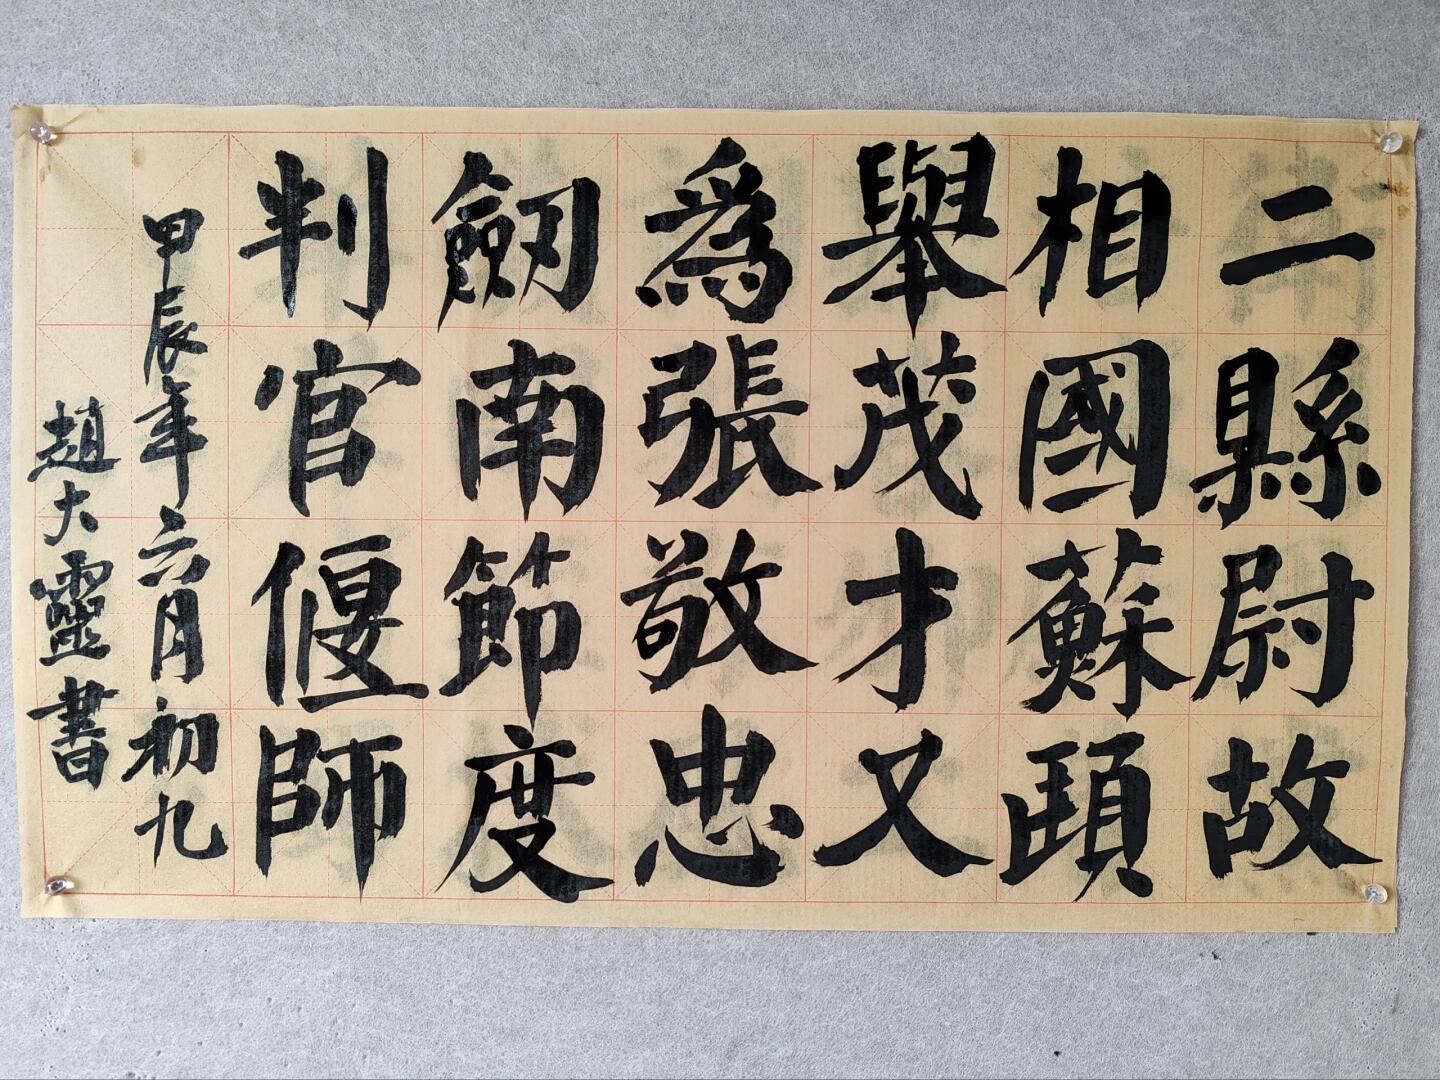 二縣尉故
相國蘇頲
舉茂才又
為張敬忠
劒南節度
判官偃師
甲辰年六月初九
趙大靈書